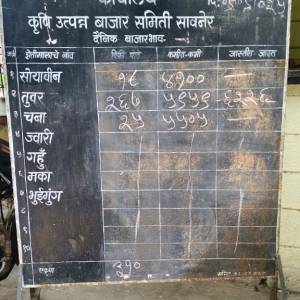 कृषि उत्पन्न बाजार समिती सावनेर
दैनिक बाजारभाव
शेतीमालाचे नांव कमीत-कमी जास्तीत जास्त
१ सोयाबीन १८ ४१००
२ तुवर २६७ ५९५९ ६२२६
३ चना २५ ५५०५
४ ज्वारी
५ गहुँ
६ मका
७ भुईमुंग
८
९
१०
३१०